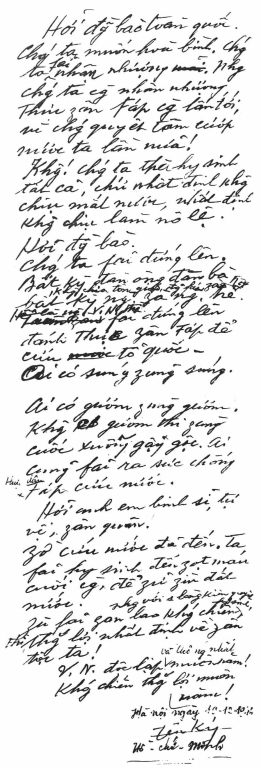 Hỡi đồng bào toàn quốc.
Chúng ta muốn hòa bình. Chúng
ta phải nhân nhượng. Nhưng
chúng ta càng nhân nhượng
thực zân Fáp càng lấn tới,
vì chúng quyết tâm cướp
nước ta lần nữa!
Không! Chúng ta thà hy sinh
tất cả, chứ nhất định không
chịu mất nước, nhất định
không chịu làm nô lệ.
Hỡi đồng bào.
Chúng ta fải đứng lên.
Bất kỳ đàn ông đàn bà
bất kỳ người già người trẻ.
fải đứng lên
đánh thực zân Fáp để
cứu tổ quốc –
Ai có súng zùng súng.
Ai có gươm zùng gươm.
Không có gươm thì zùng
cuốc xuổng gậy gộc. Ai
cũng fải ra sức chống
Fáp cứu nước.
Hỡi anh em binh sĩ, tự
vệ, zân quân.
Zờ cứu nước đã đến. Ta
fải hy sinh đến zọt máu
cuối cùng, để zữ zìn đất
nước.
Zù fải zan lao kháng chiến,
thắng lợi nhất định về zân
tộc ta!
V.N. độc lập muôn năm!
Kháng chiến thắng lợi muôn
năm!
Hà nội ngày
Ký
Hồ - chí - Minh